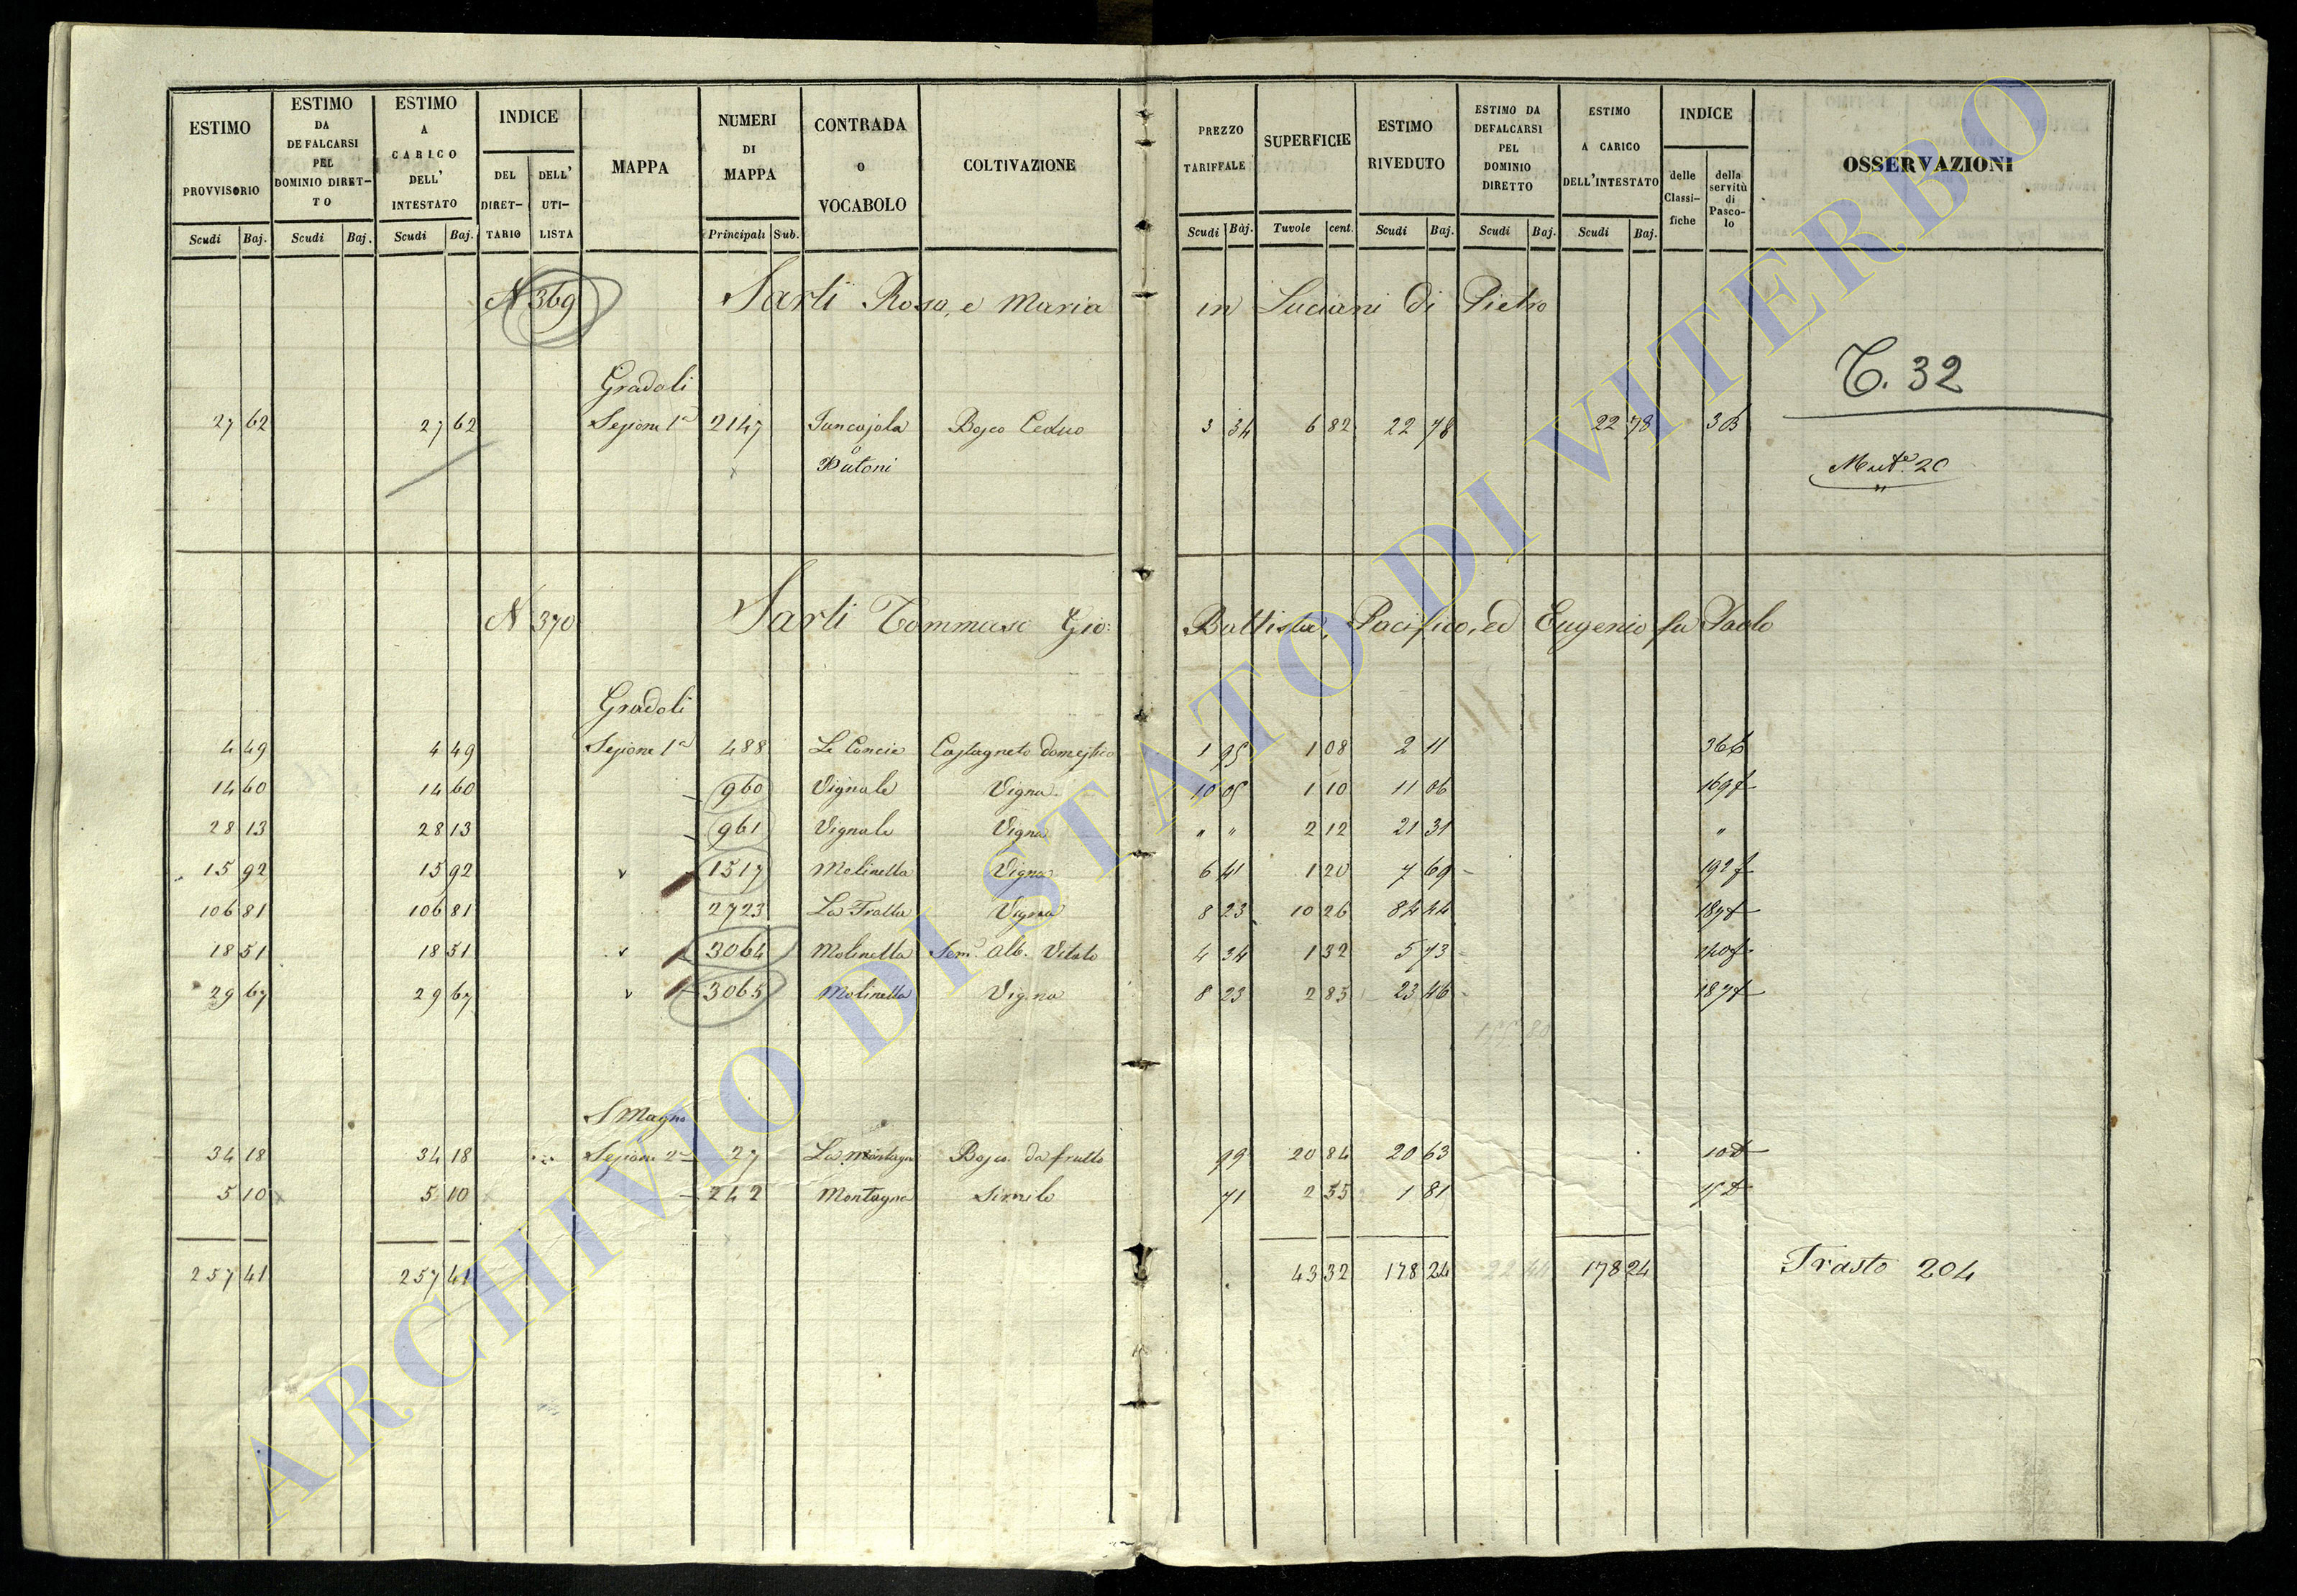 ESTIMO PROVVISORIO
ESTIMO DA DEFALCARSI PEL DOMINIO DIRET-TO
ESTIMO A CARICO DELL' INTESTATO
INDICE
DEL DIRET-TARIO
DELL' UTI-LISTA
MAPPA
NUMERI DI MAPPA
CONTRADA O VOCABOLO
COLTIVAZIONE
PREZZO TARIFFALE
SUPERFICIE
ESTIMO RIVEDUTO
ESTIMO DA DEFALCARSI PEL DOMINIO DIRETTO
ESTIMO A CARICO DELL'INTESTATO
INDICE
delle Classi-fiche
della servitù di Pasco-lo
OSSERVAZIONI
Scudi Baj. Scudi Baj. Scudi Baj. Principali Sub. Scudi Baj. Tavole cent. Scudi Baj. Scudi Baj. Scudi Baj.
N 369 Sarli Rosa, e Maria in Luciani di Pietro
T. 32
Gradoli
27 62 27 62 Sezione 1a 2147 Bosco Ceduo 3 34 6 82 22 78 22 78 3B
o
Butoni
Mut.e 20
N 370 Sarli Tommaso Gio: Battista, Pacifico, ed Eugenio fu Paolo
Gradoli
4 49 4 49 Sezione 1a 488 Le Concie Castagneto domestico 1 95 1 08 2 11 366
14 60 14 60 960 Vignale Vigna 10 05 1 10 11 06 169f
28 13 28 13 961 Vignale Vigna " " 2 12 21 31 "
15 92 15 92 v 1517 Molinella Vigna 6 41 1 20 7 69 192f
106 81 106 81 2723 La Fratta Vigna 8 23 10 26 84 44 187f
18 51 18 51 v 3064 Molinella Sem.o Alb. Vitato 4 34 1 32 5 73
29 67 29 67 v 3065 Molinella Vigna 8 23 2 85 23 46 187f
S Magno
34 18 34 18 Sezione 2a 27 La Montagna Bosco da frutto 99 20 84 20 63 10D
5 10 5 10 242 Montagna Simile 71 2 55 1 81 15D
257 41 257 41 43 32 178 24 178 24 Trasto 204
ARCHIVIO DI STATO DI VITERBO